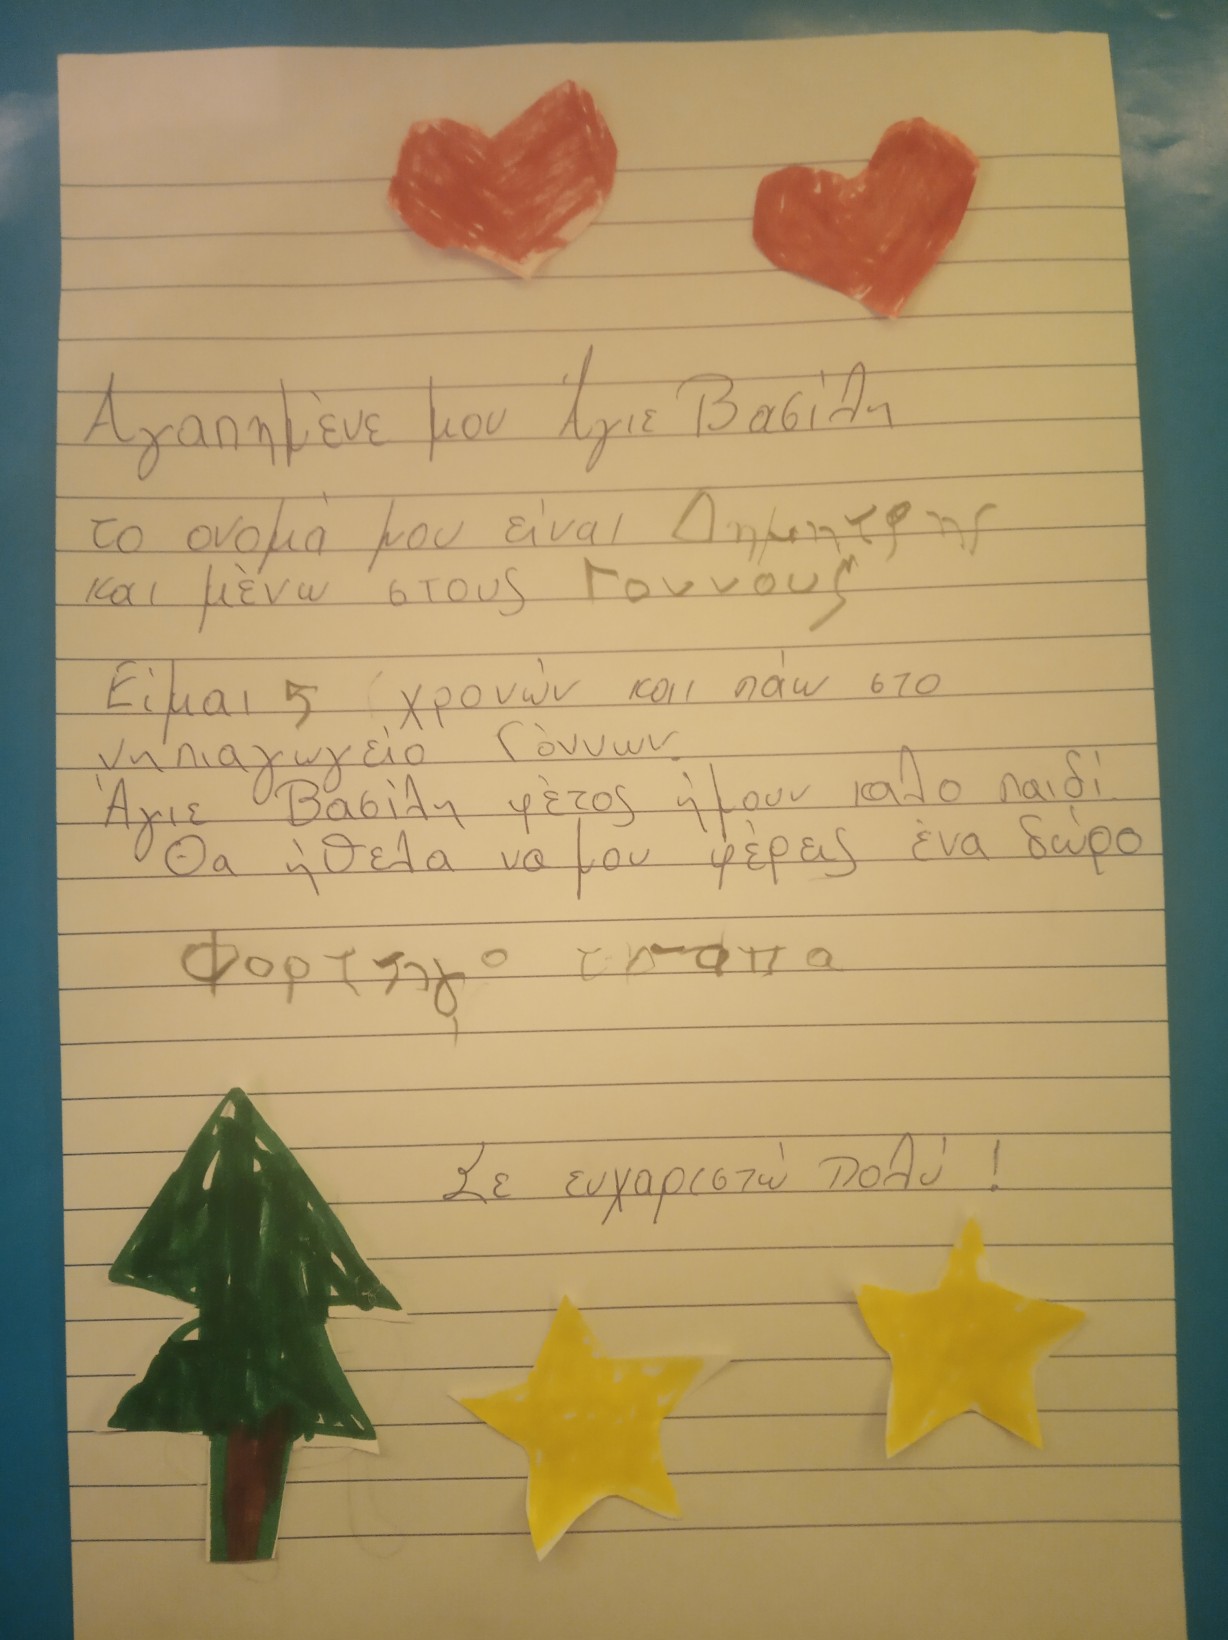 Αγαπημένε μου Άγιε Βασίλη
το ονομά μου είναι Δημητρης
και μένω στους Γοννους
Είμαι 5 χρονών και πάω στο
νηπιαγωγείο Γόννων.
Άγιε Βασίλη φέτος ήμουν καλο παιδί.
Θα ήθελα να μου φέρεις ένα δώρο
Φορτηγο
Σε ευχαριστώ πολύ!